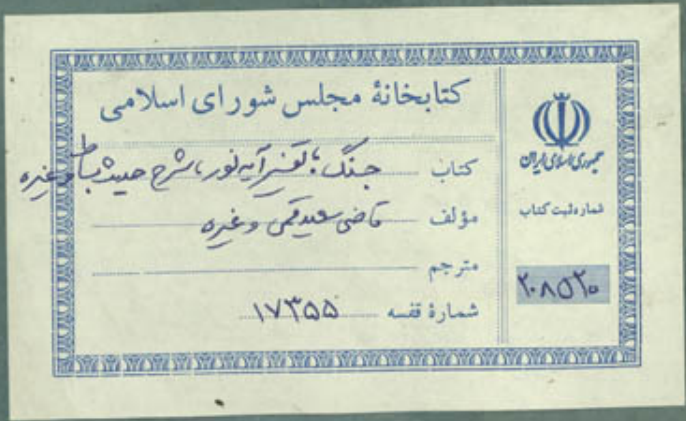 کتابخانهٔ مجلس شورای اسلامی
کتاب جنگ؛ تفسیر آیه نور، شرح حدیث بساط وغیره
مؤلف قاضی سعید قمی وغیره
مترجم
شمارهٔ قفسه ۱۷۳۵۵
جمهوری اسلامی ایران
شماره ثبت کتاب
۲۰۸۵۲۰